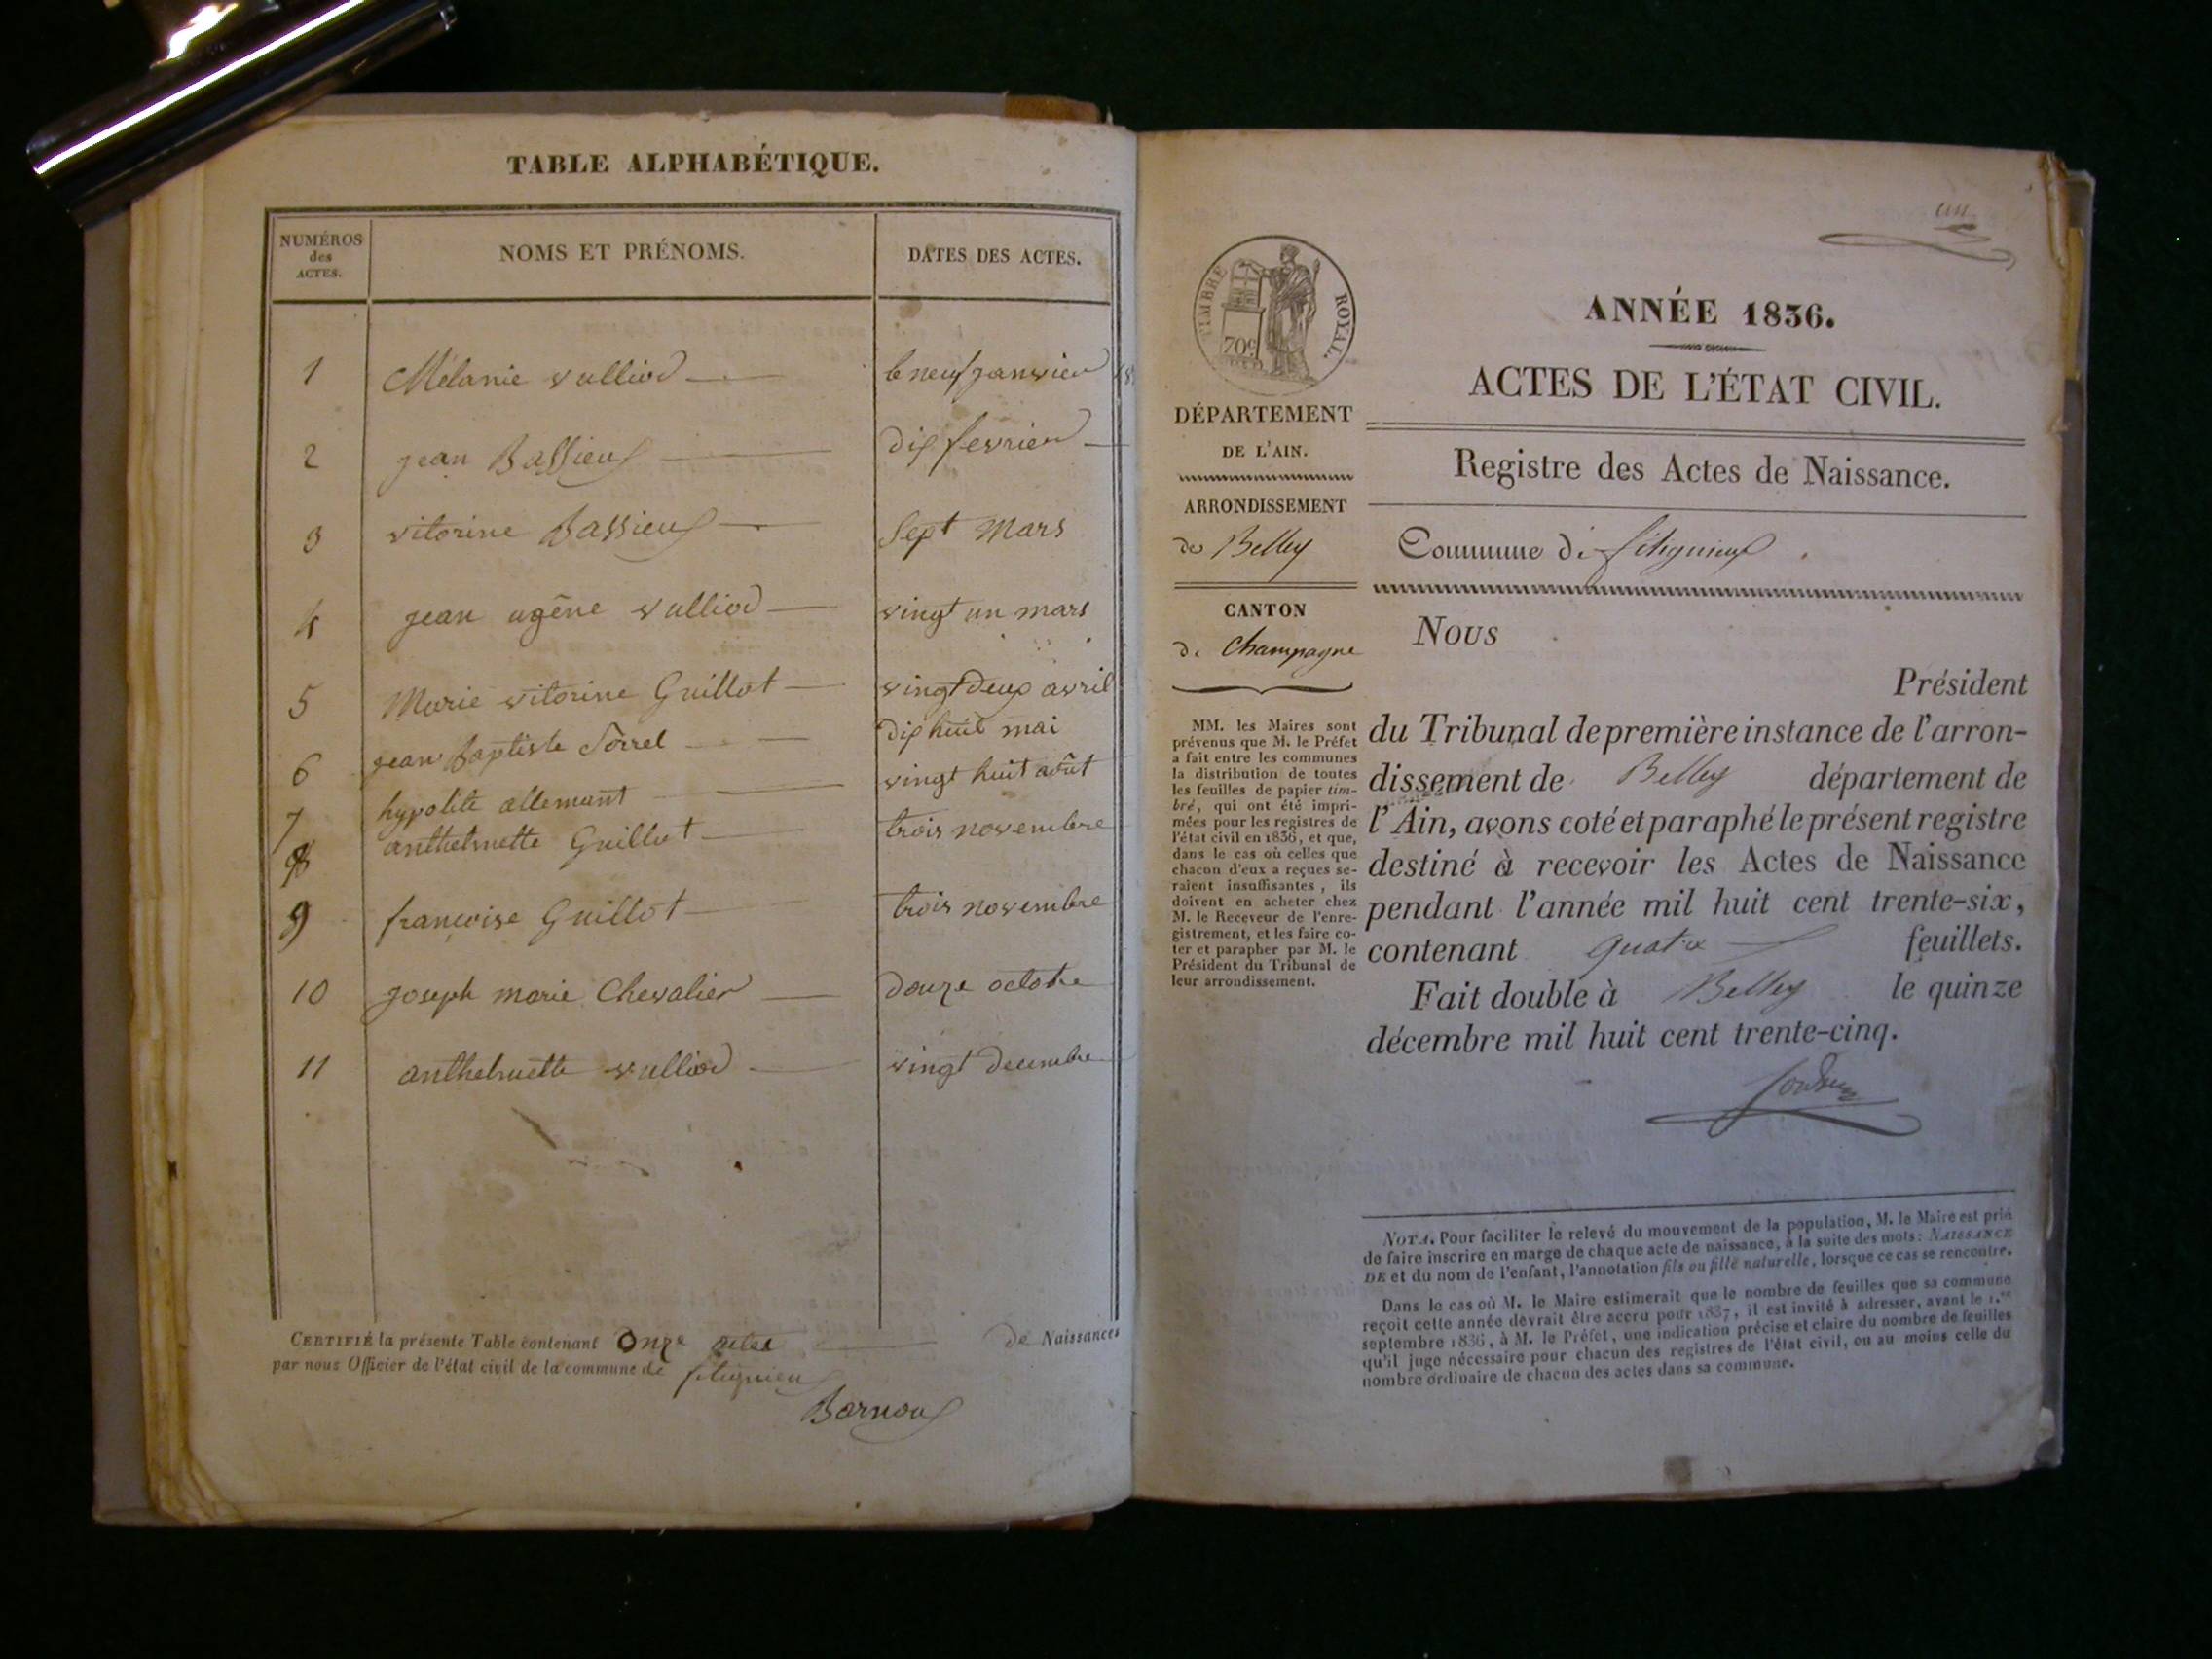 TABLE ALPHABÉTIQUE.
NUMÉROS des ACTES.
NOMS ET PRÉNOMS.
DATES DES ACTES.
1 Mélanie vulliod le neuf janvier
2 jean Bassieux dix fevrier
3 vitorine Bassieux Sept Mars
4 jean ugène vulliod vingt un mars
5 Marie vitorine Guillot vingt deux avril
6 jean Baptiste Sorrel dix huit mai
7 hypolite allemant vingt huit août
8 anthelmette Guillot trois novembre
9 françoise Guillot trois novembre
10 joseph marie Chevalier douze octobre
11 anthelmette vulliod vingt decembre
CERTIFIÉ la présente Table contenant onze actes de Naissances
par nous Officier de l'état civil de la commune de fitignieu
Bornoux
un
TIMBRE ROYAL.
70c
DÉPARTEMENT
DE L'AIN.
ARRONDISSEMENT
de Belley
CANTON
de Champagne
MM. les Maires sont
prévenus que M. le Préfet
a fait entre les communes
la distribution de toutes
les feuilles de papier tim-
bré, qui ont été impri-
mées pour les registres de
l'état civil en 1836, et que,
dans le cas où celles que
chacun d'eux a reçues se-
raient insuffisantes, ils
doivent en acheter chez
M. le Receveur de l'enre-
gistrement, et les faire co-
ter et parapher par M. le
Président du Tribunal de
leur arrondissement.
ANNÉE 1836.
ACTES DE L'ÉTAT CIVIL.
Registre des Actes de Naissance.
Commune de fitignieux
Nous
Président
du Tribunal de première instance de l'arron-
dissement de Belley département de
l'Ain, avons coté et paraphé le présent registre
destiné à recevoir les Actes de Naissance
pendant l'année mil huit cent trente-six,
contenant quatre feuillets.
Fait double à Belley le quinze
décembre mil huit cent trente-cinq.
NOTA. Pour faciliter le relevé du mouvement de la population, M. le Maire est prié
de faire inscrire en marge de chaque acte de naissance, à la suite des mots: NAISSANCE
DE et du nom de l'enfant, l'annotation fils ou fille naturelle, lorsque ce cas se rencontre.
Dans le cas où M. le Maire estimerait que le nombre de feuilles que sa commune
reçoit cette année devrait être accru pour 1837, il est invité à adresser, avant le 1.er
septembre 1836, à M. le Préfet, une indication précise et claire du nombre de feuilles
qu'il juge nécessaire pour chacun des registres de l'état civil, ou au moins celle du
nombre ordinaire de chacun des actes dans sa commune.